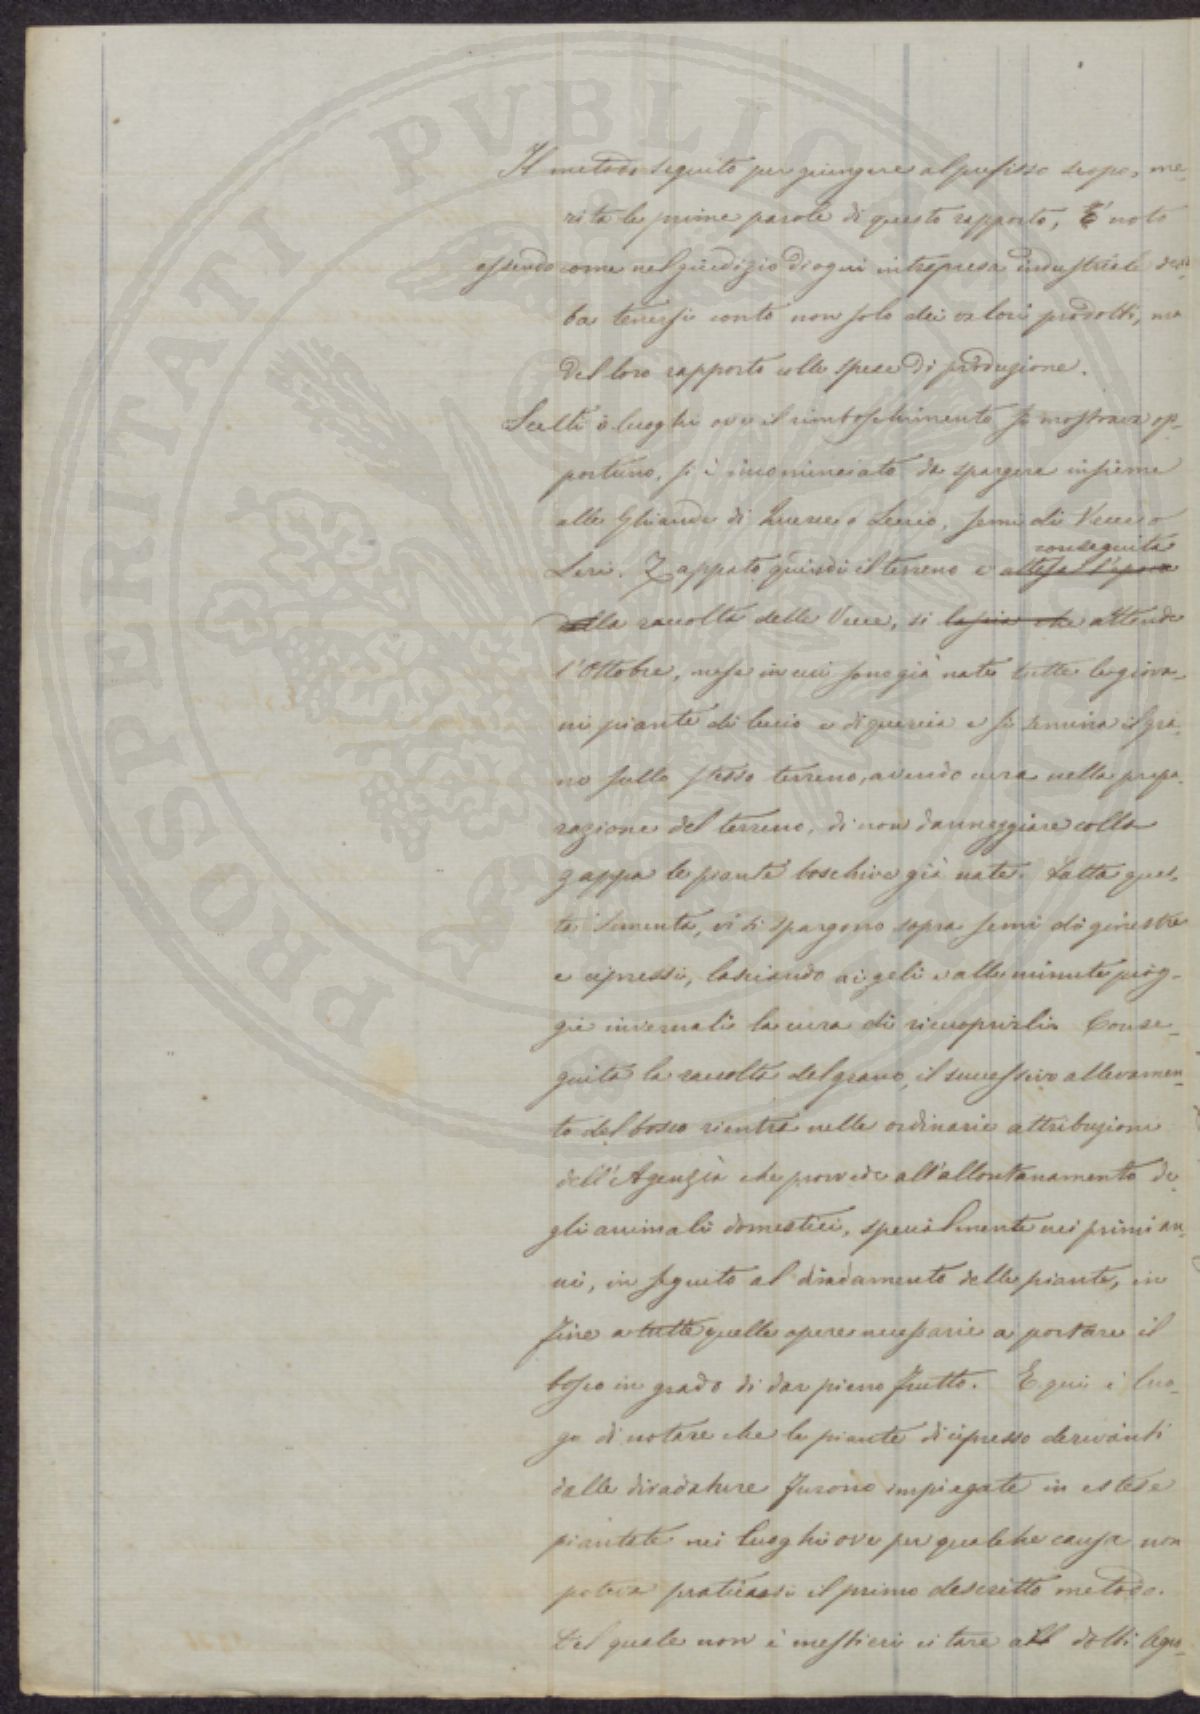 Il metodo seguito per giungere al prefisso scopo, me-
rita le prime parole di questo rapporto, È noto
essendo come nel giudizio di ogni intrapresa industriale deb-
ba tenersi conto non solo dei valori prodotti, ma
del loro rapporto colle spese di produzione.
Scelti i luoghi ove il rimboschimento si mostrava op-
portuno, si è incominciato da spargere insieme
alle Ghiande di Querce o Leccio, semi di Vecce o
conseguita
Leri. Zappato quindi il terreno e attesa l'epoca
della raccolta delle Vecce, si lascia che attende
l'Ottobre, mese in cui sono già nate tutte le giova-
ni piante di leccio e di quercia e si semina il gra-
no sullo stesso terreno, avendo cura nella prepa-
razione del terreno, di non danneggiare colla
zappa le piante boschive già nate. Fatta ques-
ta sementa, vi si spargono sopra semi di ginestre
e cipressi, lasciando ai geli e alle minute piog-
gie invernali la cura di ricuoprirli. Conse-
guita la raccolta del grano, il successivo allevamen-
to del bosco rientra nelle ordinarie attribuzioni
dell'Agenzia che provvede all'allontanamento de
gli animali domestici, specialmente nei primi an-
ni, in seguito al diradamento delle piante, in
fine a tutte quelle opere necessarie a portare il
bosco in grado di dar pieno frutto. E qui è luo-
go di notare che le piante di cipresso derivanti
dalle diradature furono impiegate in estese
piantate nei luoghi ove per qualche causa non
potea praticarsi il primo descritto metodo.
Del quale non è mestieri citare all dotti
PROSPERITATI PVBLICAE